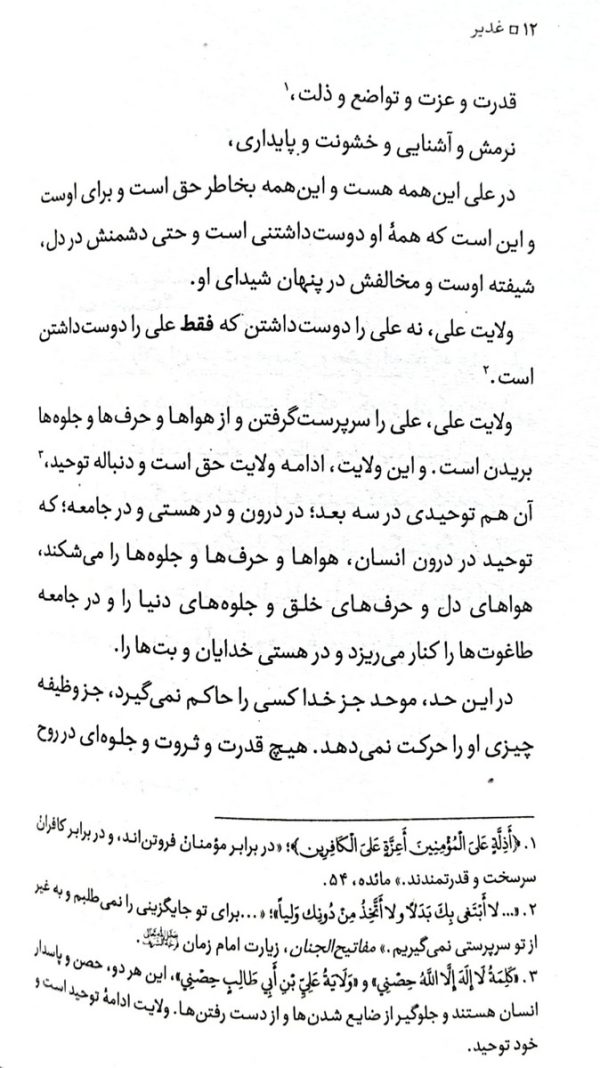 ۱۲ □ غدیر
قدرت و عزت و تواضع و ذلت،۱
نرمش و آشنایی و خشونت و پایداری،
در علی این‌همه هست و این‌همه بخاطر حق است و برای اوست
و این است که همهٔ او دوست‌داشتنی است و حتی دشمنش در دل،
شیفته اوست و مخالفش در پنهان شیدای او.
ولایت علی، نه علی را دوست‌داشتن که فقط علی را دوست‌داشتن
است.۲
ولایت علی، علی را سرپرست‌گرفتن و از هواها و حرف‌ها و جلوه‌ها
بریدن است. و این ولایت، ادامه ولایت حق است و دنباله توحید،۳
آن هم توحیدی در سه بعد؛ در درون و در هستی و در جامعه؛ که
توحید در درون انسان، هواها و حرف‌ها و جلوه‌ها را می‌شکند،
هواهای دل و حرف‌های خلق و جلوه‌های دنیا را و در جامعه
طاغوت‌ها را کنار می‌ریزد و در هستی خدایان و بت‌ها را.
در این حد، موحد جز خدا کسی را حاکم نمی‌گیرد، جز وظیفه
چیزی او را حرکت نمی‌دهد. هیچ قدرت و ثروت و جلوه‌ای در روح
۱. ﴿أَذِلَّةٍ عَلَىَ الْمُؤْمِنِينَ أَعِزَّةٍ عَلَىَ الْكَافِرِين﴾؛ «در برابر مؤمنان فروتن‌اند، و در برابر کافران
سرسخت و قدرتمندند.» مائده، ۵۴.
۲. «... لا أَبْتَغی بِكَ بَدَلاً ولا أَتَّخِذُ مِنْ دُونِكَ وَلیاً»؛ «...برای تو جایگزینی را نمی‌طلبم و به غیر
از تو سرپرستی نمی‌گیریم.» مفاتیح‌الجنان، زیارت امام زمان .
۳. «كَلِمَةُ لَا إِلَهَ إِلَّا اللَّهُ حِصْنِي» و «وَلَايَةُ عَلِيِّ بْنِ أَبِي طَالِبٍ حِصْنِي»، این هر دو، حصن و پاسدار
انسان هستند و جلوگیر از ضایع شدن‌ها و از دست رفتن‌ها. ولایت ادامهٔ توحید است و
خود توحید.